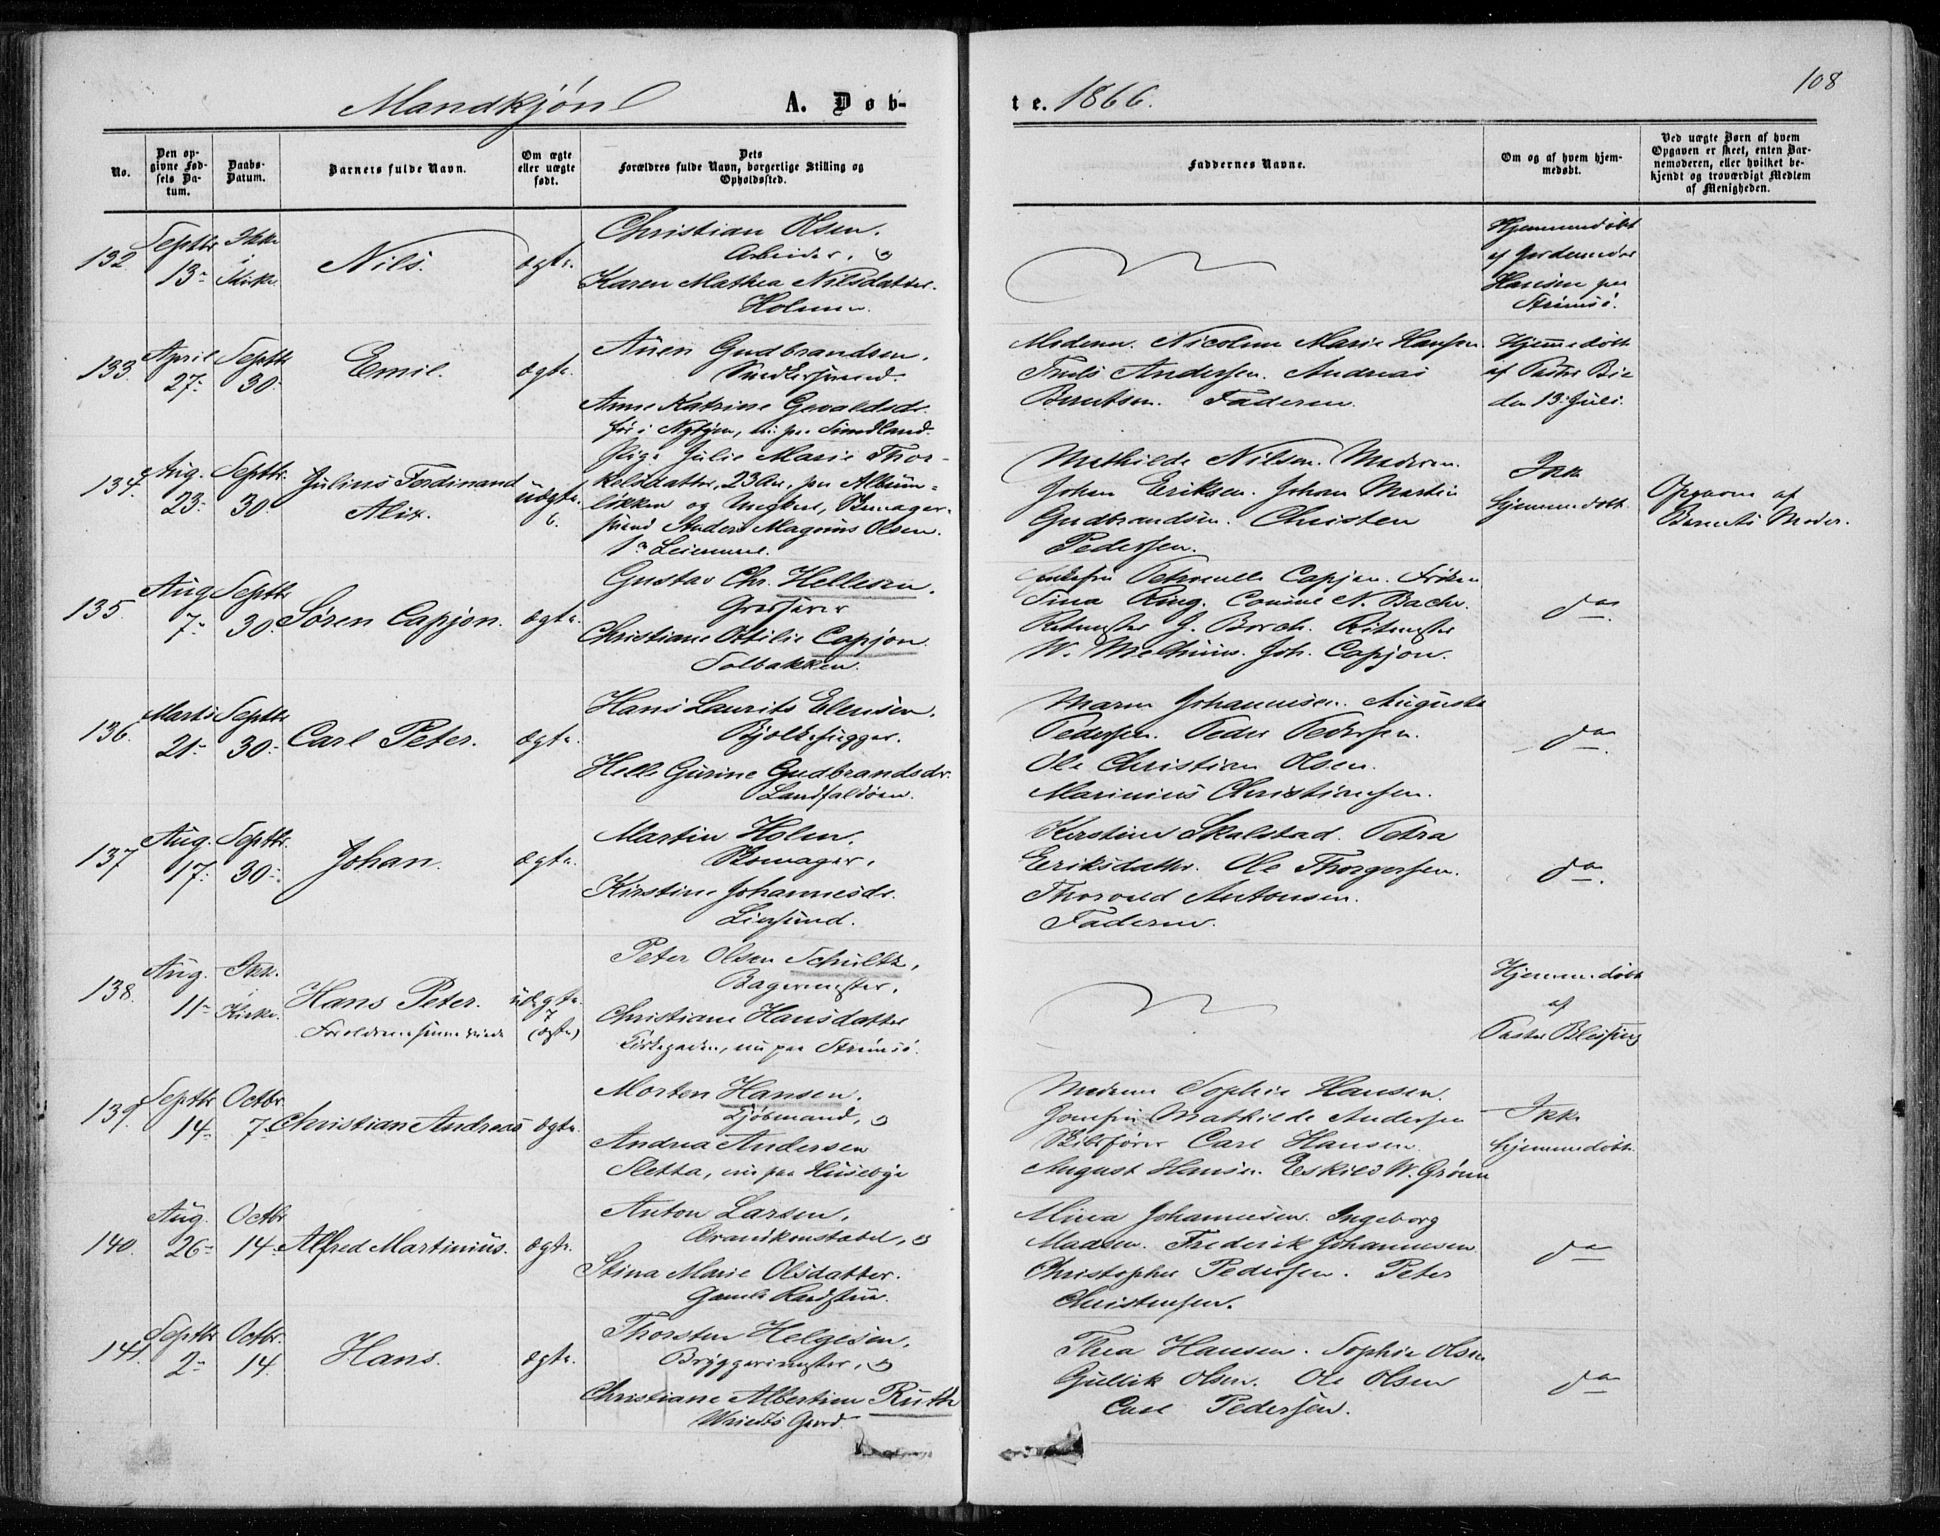 108
Mandkjøn A. Døb-
te. 1866.
No.
Den op-
givne Fød-
sels Da-
tum.
Daabs-
Datum.
Barnets fulde Navn.
Om ægte
eller uægte
født.
Dets
Forældres fulde Navn, borgerlige Stilling og
Opholdssted.
Faddernes Navne.
Om og af hvem hjem-
medøbt.
Ved uægte Børn af hvem
Opgaven er skeet, enten Bar-
nemoderen, eller hvilket be-
kjendt og troværdigt Medlem
af Menigheden.
132
Septbr
13
Ikke
i
Kirke.
Nils.
ægte.
Christian Olsen.
Arbeider,
Karen Mathea Nilsdatter.
Holmen.
Hjemmedøbt
af Jordemoder
Hansen paa
Strømsø.
133.
April
27
Septbr
30
Emil.
ægte.
Anen Gudbrandsen.
Smedersvend.
Anne Katrine
før i Nybyen, nu paa Sundland.
Moderen. Nicoline Marie Hansen
Truls Andersen. Andreas
Berntsen. Faderen.
Hjemmedøbt
af Pastor Bie
den 13 Juli.
134.
Aug.
23
Septbr.
30
Julius Ferdinand
Alix.
uægte.
6.
Pige Julie Marie Thor-
kelsdatter, 23 Aar, paa Album-
løkken og Ungkarl, Skomager-
svend Anders Magnus Olsen.
1ste Leiermaal.
Mathilde Nilsen. Moderen.
Johan Eriksen. Johan Martin
Gudbrandsen. Christen
Pedersen.
Ikke
hjemmedøbt.
Opgaven af
Barnets Moder.
135.
Aug
7
Septbr
30
Søren Capjon.
ægte.
Gustav Chr. Hellesen.
Christiane Ottilie Capjon.
Solbakken.
Petronelle Capjon. Frøken
Sina Ring. N. Bache.
Ritmester J. Borch. Ritmester
W. Melhuus. Joh. Capjon.
do.
136.
Marts
21
Septbr
30
Carl Peter.
ægte.
Hans Laurits Elensen.
Bjelkehugger.
Helle Gurine Gudbrandsdr.
Landfaldøen.
Maren Johannesen. Auguste
Pedersen. Peder Pedersen.
Ole Christian Olsen.
Marinius Christiansen.
do.
137
Aug.
17
Septbr.
30
Johan.
ægte.
Martin Holm.
Skomager,
Kirstine Johannesdr.
Liersund.
Kirstine Skalstad. Petra
Eriksdatter. Ole Thorgersen.
Thorvald Antonsen.
Faderen.
do.
138.
Aug.
11
Ikke
i
Kirke.
Hans Peter.
Forældrene siden viede
uægte
7
(ægte)
Peter Olsen Schultz,
Bagermester,
Christiane Hansdatter
Kirkegaden, nu paa Strømsø.
Hjemmedøbt
af
Pastor Blessing
139.
Septbr
14
Octbr.
7
Christian Andreas
ægte.
Morten Hansen.
Kjøbmand,
Andrea Andersen
Sletta, nu paa Huseby
Moderen Sophie Hansen.
Jomfru Mathilde Andersen
Skibsfører Carl Hansen.
August Hansen. Eskild W. Grønn
Ikke
hjemmedøbt.
140.
Aug.
26
Octbr
14
Alfred Martinius.
ægte.
Anton Larsen.
Brandkonstabel,
Stina Marie Olsdatter.
Gamle
Mina Johannesen. Ingeborg
Madsen. Frederik Johannesen
Christopher Pedersen. Peter
Christensen.
do
141.
Septbr
2
Octbr.
14.
Hans.
ægte.
Thorsten Helgesen,
Bryggerimester,
Christiane Albertine Ruth
Wriedts Gaard.
Thea Hansen. Sophie Olsen
Gullik Olsen. Ole Olsen
Carl Pedersen.
do